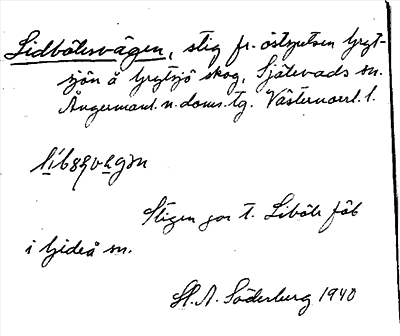 Lidbölesvägen, stig fr. östspetsen Gryt-
sjön å Grytsjö skog, Själevads sn.
Ångermanl. n. doms. tg. Västernorrl. l.
Stigen går t. Liböle fäb
i Gideå sn.
H. A. Söderberg 1940